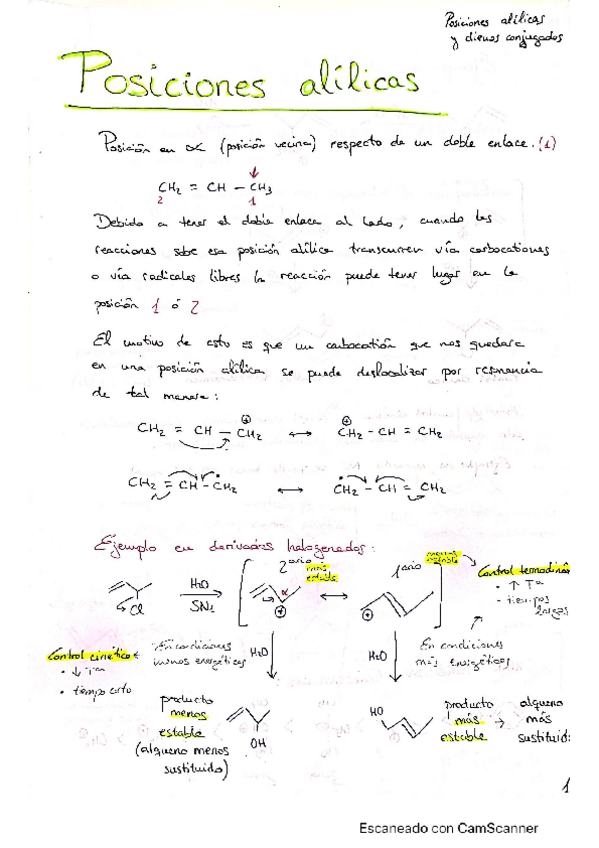 Posiciones alílicas
y dienos conjugados
Posiciones alílicas
Posición en α (posición vecina) respecto de un doble enlace. (1)
CH2 = CH - CH3
2 1
Debido a tener el doble enlace al lado, cuando las
reacciones sobre esa posición alílica transcurren vía carbocationes
o vía radicales libres la reacción puede tener lugar en la
posición 1 ó 2
El motivo de esto es que un carbocatión que nos quedara
en una posición alílica se puede deslocalizar por resonancia
de tal manera:
CH2 = CH - CH2 ⊕ ↔ ⊕ CH2 - CH = CH2
CH2 = CH - ĊH2 ↔ ĊH2 - CH = CH2
Ejemplo en derivados halogenados:
2ario más estable
1ario menos estable
Control termodinám
• ↑ Tª
• tiempos largos
Cl
H2O
SN1
α
⊕ ↔ ⊕
Control cinético
• ↓ Tª
• tiempo corto
En condiciones
menos energéticas
H2O
H2O
En condiciones
más energéticas
producto
menos
estable
(alqueno menos
sustituido)
OH
HO
producto
más
estable
→ alqueno
más
sustituid
1
Escaneado con CamScanner